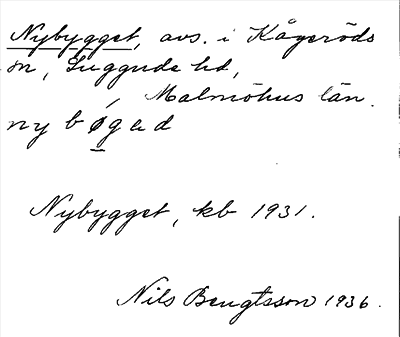 Nybygget, avs. i Kågeröds
sn, Luggude hd,
Malmöhus län.
nybøgad
Nybygget, kb 1931.
Nils Bengtsson 1936.